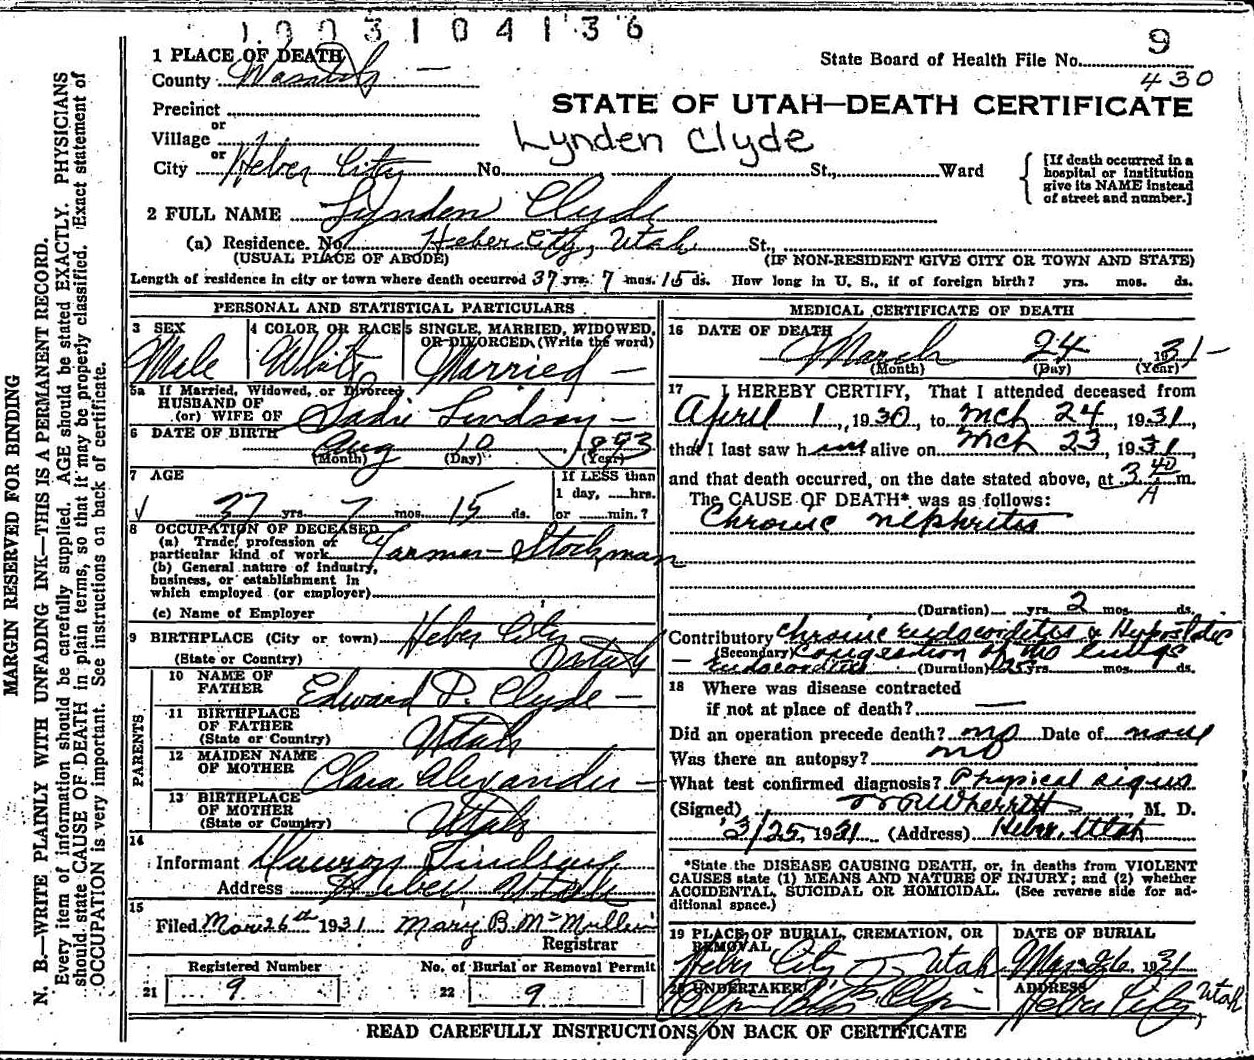 1003104136
1 PLACE OF DEATH
County Wasatch
State Board of Health File No. 9
430
Precinct
STATE OF UTAH—DEATH CERTIFICATE
or
Village
Lynden Clyde
or
City Heber City No. St., Ward
[If death occurred in a
hospital or institution
give its NAME instead
of street and number.]
2 FULL NAME Lynden Clyde
(a) Residence. No. Heber City, Utah St.,
(USUAL PLACE OF ABODE) (IF NON-RESIDENT GIVE CITY OR TOWN AND STATE)
Length of residence in city or town where death occurred 37 yrs. 7 mos. 15 ds. How long in U. S., if of foreign birth? yrs. mos. ds.
PERSONAL AND STATISTICAL PARTICULARS
3 SEX
Male
4 COLOR OR RACE
White
5 SINGLE, MARRIED, WIDOWED,
OR DIVORCED, (Write the word)
Married
5a If Married, Widowed, or Divorced
HUSBAND OF
(or) WIFE OF Sadie Lindsay
6 DATE OF BIRTH
Aug 10 1893
(Month) (Day) (Year)
7 AGE
37 yrs. 7 mos. 15 ds.
If LESS than
1 day, hrs.
or min.?
8 OCCUPATION OF DECEASED
(a) Trade, profession or
particular kind of work Farmer-Stockman
(b) General nature of industry,
business, or establishment in
which employed (or employer)
(c) Name of Employer
9 BIRTHPLACE (City or town) Heber City
(State or Country) Utah
PARENTS
10 NAME OF
FATHER Edward D. Clyde
11 BIRTHPLACE
OF FATHER
(State or Country) Utah
12 MAIDEN NAME
OF MOTHER Clara Alexander
13 BIRTHPLACE
OF MOTHER
(State or Country) Utah
14
Informant Lindsay
Address Heber Utah
15
Filed Mar 26th 1931 Mary B. McMullin
Registrar
Registered Number
21 9
No. of Burial or Removal Permit
22 9
MEDICAL CERTIFICATE OF DEATH
16 DATE OF DEATH
March 24 1931
(Month) (Day) (Year)
17 I HEREBY CERTIFY, That I attended deceased from
April 1, 1930, to Mch 24, 1931,
that I last saw him alive on Mch 23, 1931,
and that death occurred, on the date stated above, at 3 40 A m.
The CAUSE OF DEATH* was as follows:
Chronic Nephritis
(Duration) yrs. 2 mos. ds.
Contributory Chronic Endocarditis & Hypostatic
(Secondary) Congestion of the lungs
Endocarditis (Duration) 25 yrs. mos. ds.
18 Where was disease contracted
if not at place of death?
Did an operation precede death? no Date of none
Was there an autopsy? no
What test confirmed diagnosis? Physical signs
(Signed) Wherritt, M. D.
3/25, 1931 (Address) Heber, Utah
*State the DISEASE CAUSING DEATH, or, in deaths from VIOLENT
CAUSES state (1) MEANS AND NATURE OF INJURY; and (2) whether
ACCIDENTAL, SUICIDAL OR HOMICIDAL. (See reverse side for ad-
ditional space.)
19 PLACE OF BURIAL, CREMATION, OR
REMOVAL
Heber City Utah
DATE OF BURIAL
Mar 26, 1931
20 UNDERTAKER
ADDRESS
Heber City, Utah
READ CAREFULLY INSTRUCTIONS ON BACK OF CERTIFICATE
MARGIN RESERVED FOR BINDING
N. B.—WRITE PLAINLY WITH UNFADING INK—THIS IS A PERMANENT RECORD.
Every item of information should be carefully supplied. AGE should be stated EXACTLY. PHYSICIANS
should state CAUSE OF DEATH in plain terms, so that it may be properly classified. Exact statement of
OCCUPATION is very important. See instructions on back of certificate.